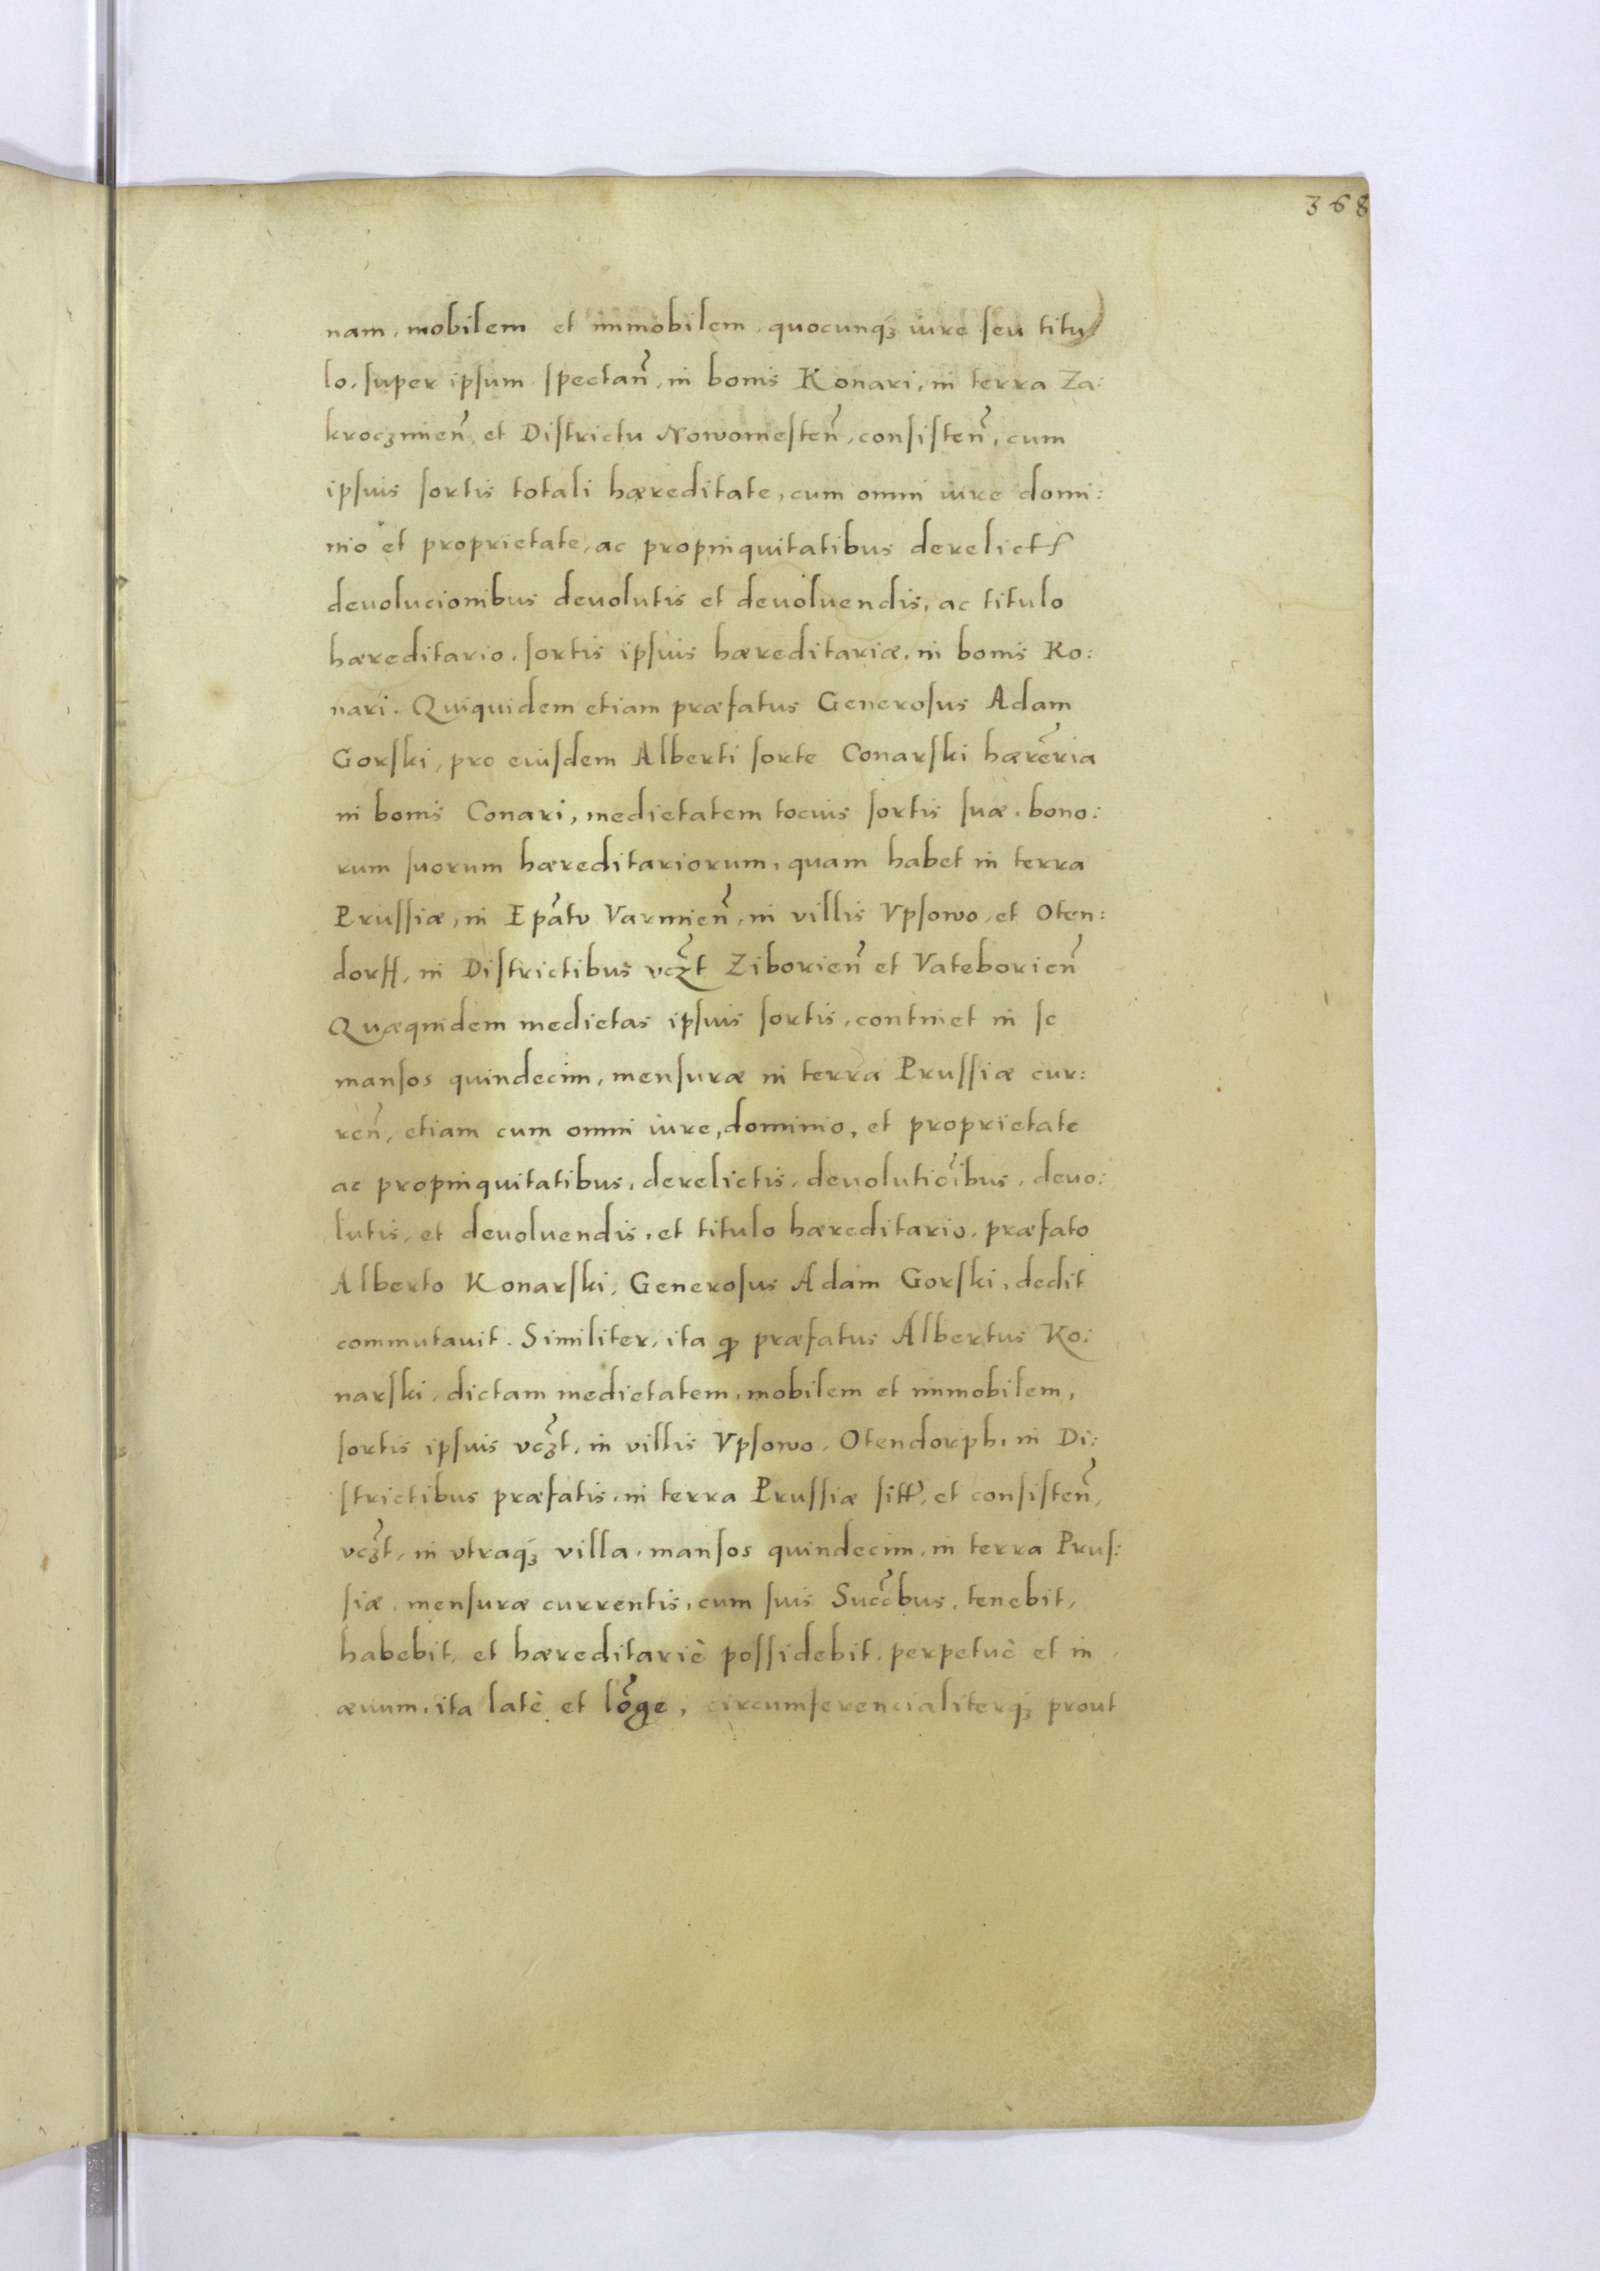 368
nam, mobilem et immobilem, quocunqꝫ iure seu titu
lo, super ipsum spectañ, in bonis Konari, in terra Za:
krocзmieñ, et Districtu Nowomesteñ, consisteñ, cum
ipsius sortis totali hæreditate, cum omni iure domi:
nio et proprietate, ac propinquitatibus derelictꝭ
deuolucionibus deuolutis et deuoluendis, ac titulo
hæreditario, sortis ipsius hæreditariæ, in bonis Ko:
nari. Quiquidem etiam præfatus Generosus Adam
Gorski, pro eiusdem Alberti sorte Conarski hærer̃ia
in bonis Conari, medietatem tocius sortis suæ, bono:
rum suorum hæreditariorum, quam habet in terra
Prussiæ, in Ep̃atu Varmieñ, in villis Vpsowo, et Oten:
dorff, in Districtibus vcꝫ̃t Ziborieñ et Vateborieñ
Quæquidem medietas ipsius sortis, continet in se
mansos quindecim, mensuræ in terra Prussiæ cur:
reñ, etiam cum omni iure, dominio, et proprietate
ac propinquitatibus, derelictis, deuolutiõibus, deuo:
lutis, et deuoluendis, et titulo hæreditario, præfato
Alberto Konarski, Generosus Adam Gorski, dedit
commutauit. Similiter, ita ꝙ præfatus Albertus Ko:
narski, dictam medietatem, mobilem et immobilem,
sortis ipsius vcꝫ̃t, in villis Vpsowo, Otendorph, in Di:
strictibus præfatis, in terra Prussiæ sitt̃, et consisteñ,
vcꝫ̃t, in vtraqꝫ villa, mansos quindecim, in terra Prus:
siæ, mensuræ currentis, cum suis Succ̃bus, tenebit,
habebit, et hæreditariè possidebit, perpetuè et in
æuum, ita latè et lõge, circumferencialiterqꝫ prout